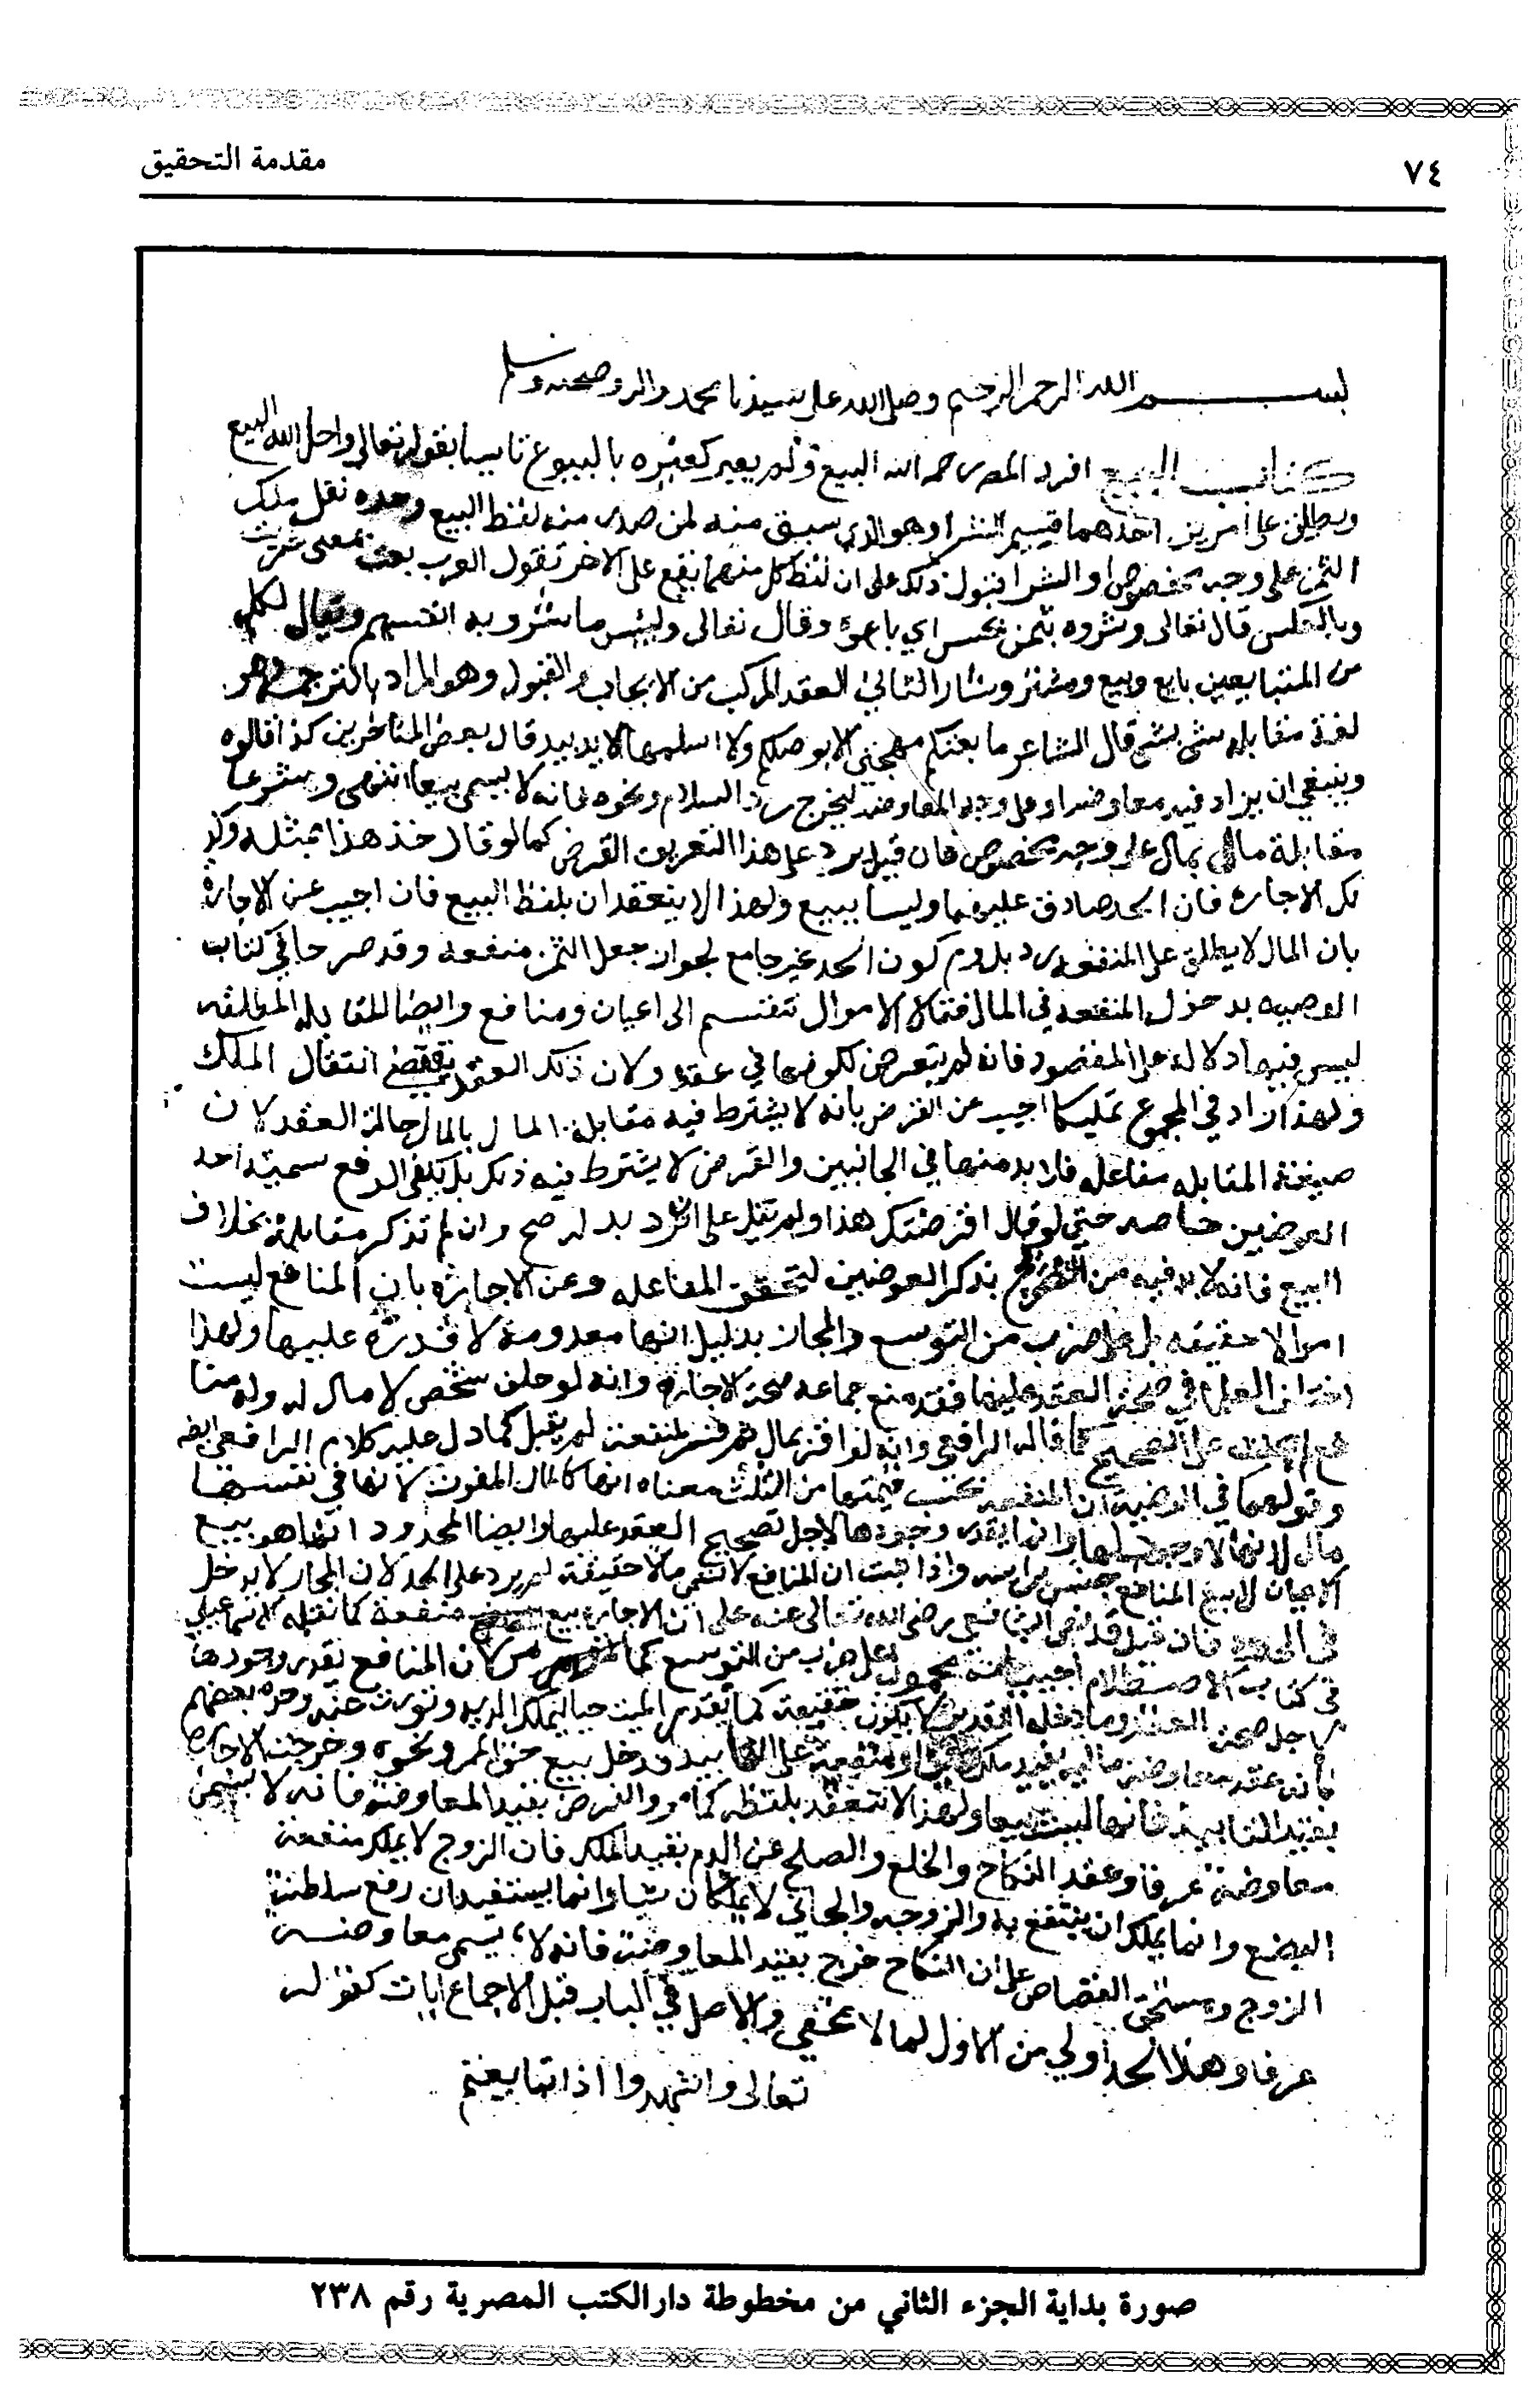 ٧٤
مقدمة التحقيق
بسم الله الرحمن الرحيم وصلى الله على سيدنا محمد واله وصحبه وسلم
كتاب البيع افرد المصنف رحمه الله البيع ولم يعبر كغيره بالبيوع تاسيا بقوله تعالى واحل الله البيع
ويطلق على امرين احدهما قسيم الشرا وهو الذي سبق منه لمن صدر منه لفظ البيع وحده نقل ملك
الثمن على وجه مخصوص او الشرا قبول ذلك على ان لفظ كل منهما يقع على الاخر تقول العرب بعت بمعنى شريت
وبالعكس قال تعالى وشروه بثمن بخس اي باعوه وقال تعالى ولبئس ما شروا به انفسهم ويقال لكل
من المتبايعين بايع وبيع ومشتر وشار الثاني العقد المركب من الايجاب والقبول وهو المراد بالترجمة وهو
لغة مقابلة شي بشي قال الشاعر ما بعتكم مهجتي الا بوصلكم ولا اسلمها الا يد بيد قال بعض المتاخرين كذا قالوه
وينبغي ان يزاد فيه معاوضة او على وجه المعاوضة ليخرج رد السلام ونحوه فانه لا يسمى بيعا انتهى وشرعا
مقابلة مال بمال على وجه مخصوص فان قيل يرد على هذا التعريف القرض كما لو قال خذ هذا بمثله وكذ
لك الاجارة فان الحد صادق عليهما وليسا ببيع ولهذا لا ينعقدان بلفظ البيع فان اجيب عن الاجارة
بان المال لا يطلق على المنفعة رد بلزوم كون الحد غير جامع لجواز جعل الثمن منفعة وقد صرحا في كتاب
الوصية بدخول المنفعة في المال فقالا الاموال تنقسم الى اعيان ومنافع وايضا المقابلة المطلقة
ليس فيها دلالة على المقصود فانه لم يتعرض لكونها في عقد ولا ان ذلك العقد يقتضي انتقال الملك
ولهذا زاد في المجموع تمليكا اجيب عن القرض بانه لا يشترط فيه مقابلة المال بالمال حالة العقد لان
صيغة المقابلة مفاعلة فلا بد منها في الجانبين والقرض لا يشترط فيه ذلك بل يكفي الدفع سمية احد
العوضين خاصة حتى لو قال اقرضتك هذا ولم يقل على ان ترد بدله صح وان لم تذكر مقابلة بخلاف
البيع فانه لا بد فيه من بذكر العوضين لتحقق المفاعلة وعن الاجارة بان المنافع ليست
اموالا حقيقة بل على ضرب من التوسع والمجاز بدليل انها معدومة لا قدرة عليها ولهذا
اختلف العلما في صحة العقد عليها فقد منع جماعة صحة الاجارة وانه لو حلف شخص لا مال له وله منا
فع لم يحنث على الصحيح كما قاله الرافعي وانه لو اقر بمال ثم فسر بمنفعة لم يقبل كما دل عليه كلام الرافعي ايضا
وقولهما في الوصية ان المنفعة تحسب قيمتها من الثلث معناه انها كالمال المفوت لا انها في نفسها
مال لانها لا وجود لها وانما يقدر وجودها لاجل تصحيح العقد عليها وايضا المحدود انما هو بيع
الاعيان لا بيع المنافع جنس براسه واذا ثبت ان المنافع لا تسمى مالا حقيقة لم يرد على الحد لان المجاز لا يدخل
في الحدود فان قيل قد نص الشافعي رضي الله تعالى عنه على ان الاجارة بيع منفعة كما نقله
في كتاب الاصطلام اجيب بانه محمول على ضرب من التوسع كما من كون المنافع يقدر وجودها
لاجل صحة العقد وما دخله التقدير لا يكون حقيقة كما يقدم الميت حيا لتملك الدية وتورث عنه وحده بعضهم
بانه عقد معاوضة مالية يفيد ملك عين او منفعة على التابيد ودخل بيع حق الممر ونحوه وخرجت الاجارة
بقيد التابيد فانها ليست بيعا ولهذا لا تنعقد بلفظه كما مر والقرض بقيد المعاوضة فانه لا يسمى
معاوضة عرفا وعقد النكاح والخلع والصلح عن الدم بقيد الملك فان الزوج لا يملك منفعة
البضع وانما يملك ان ينتفع به والزوجة والجاني لا يملكان شيا وانما يستفيدان رفع سلطنة
الزوج ومستحق القصاص على ان النكاح خرج بقيد المعاوضة فانه لا يسمى معاوضة
عرفا وهذا الحد اولى من الاول لما لا يخفى والاصل في الباب قبل الاجماع ايات كقوله
تعالى واشهدوا اذا تبايعتم
صورة بداية الجزء الثاني من مخطوطة دار الكتب المصرية رقم ٢٣٨